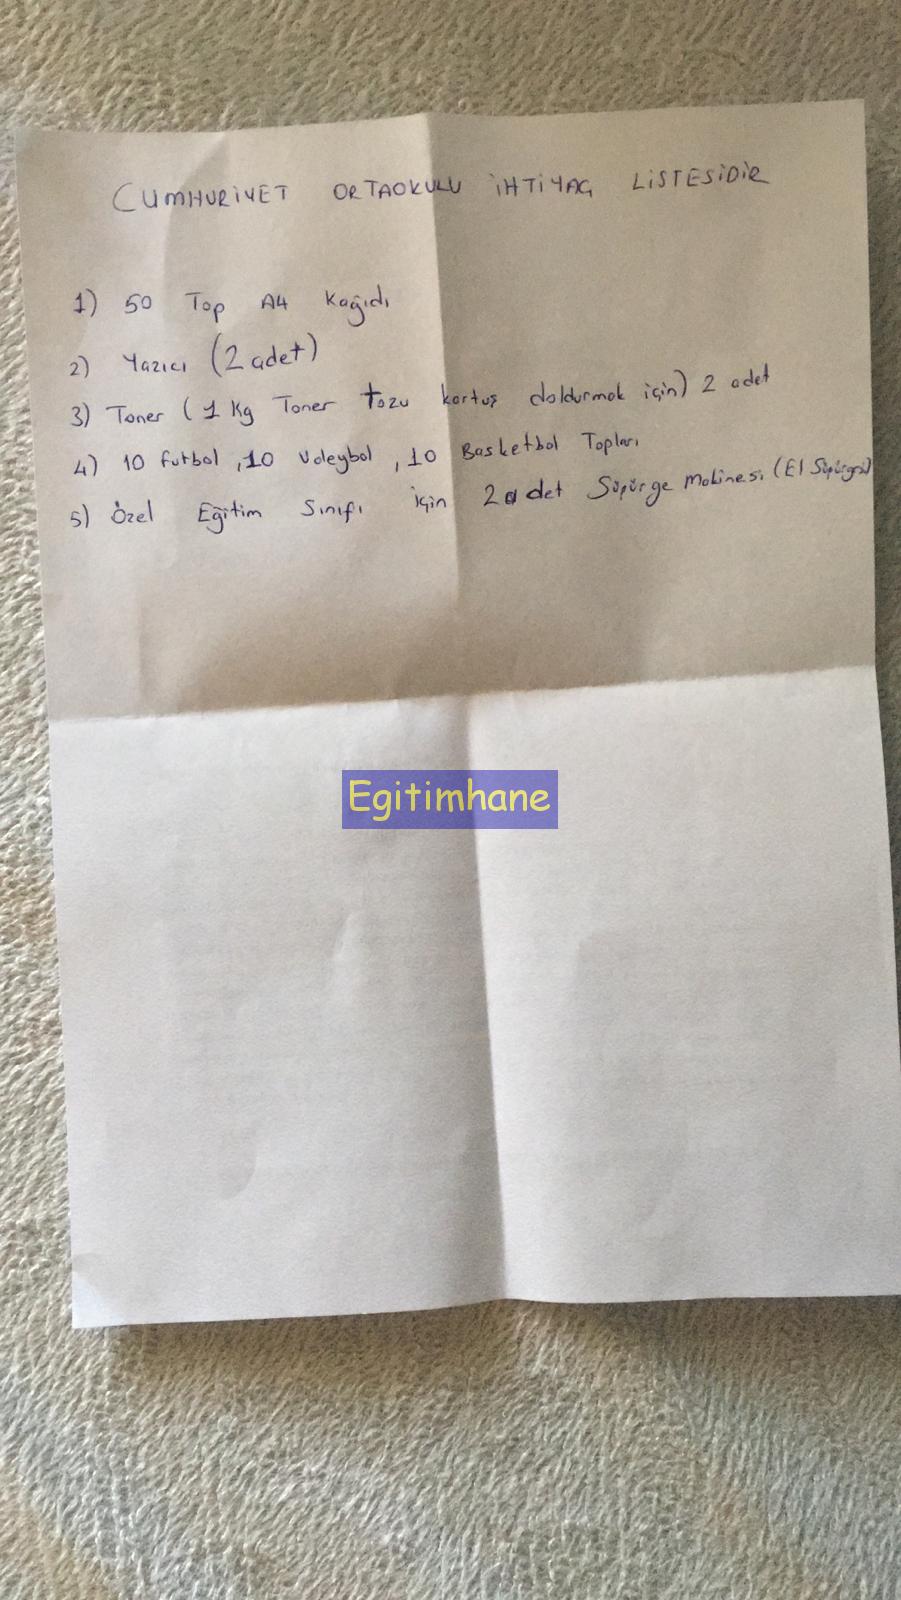 CUMHURİYET ORTAOKULU İHTİYAÇ LİSTESİDİR
1) 50 Top A4 Kağıdı
2) Yazıcı (2 adet)
3) Toner (1 Kg Toner tozu kartuş doldurmak için) 2 adet
4) 10 futbol, 10 Voleybol, 10 Basketbol Topları
5) Özel Eğitim Sınıfı için 2 adet Süpürge Makinesi (El Süpürgesi)
Egitimhane